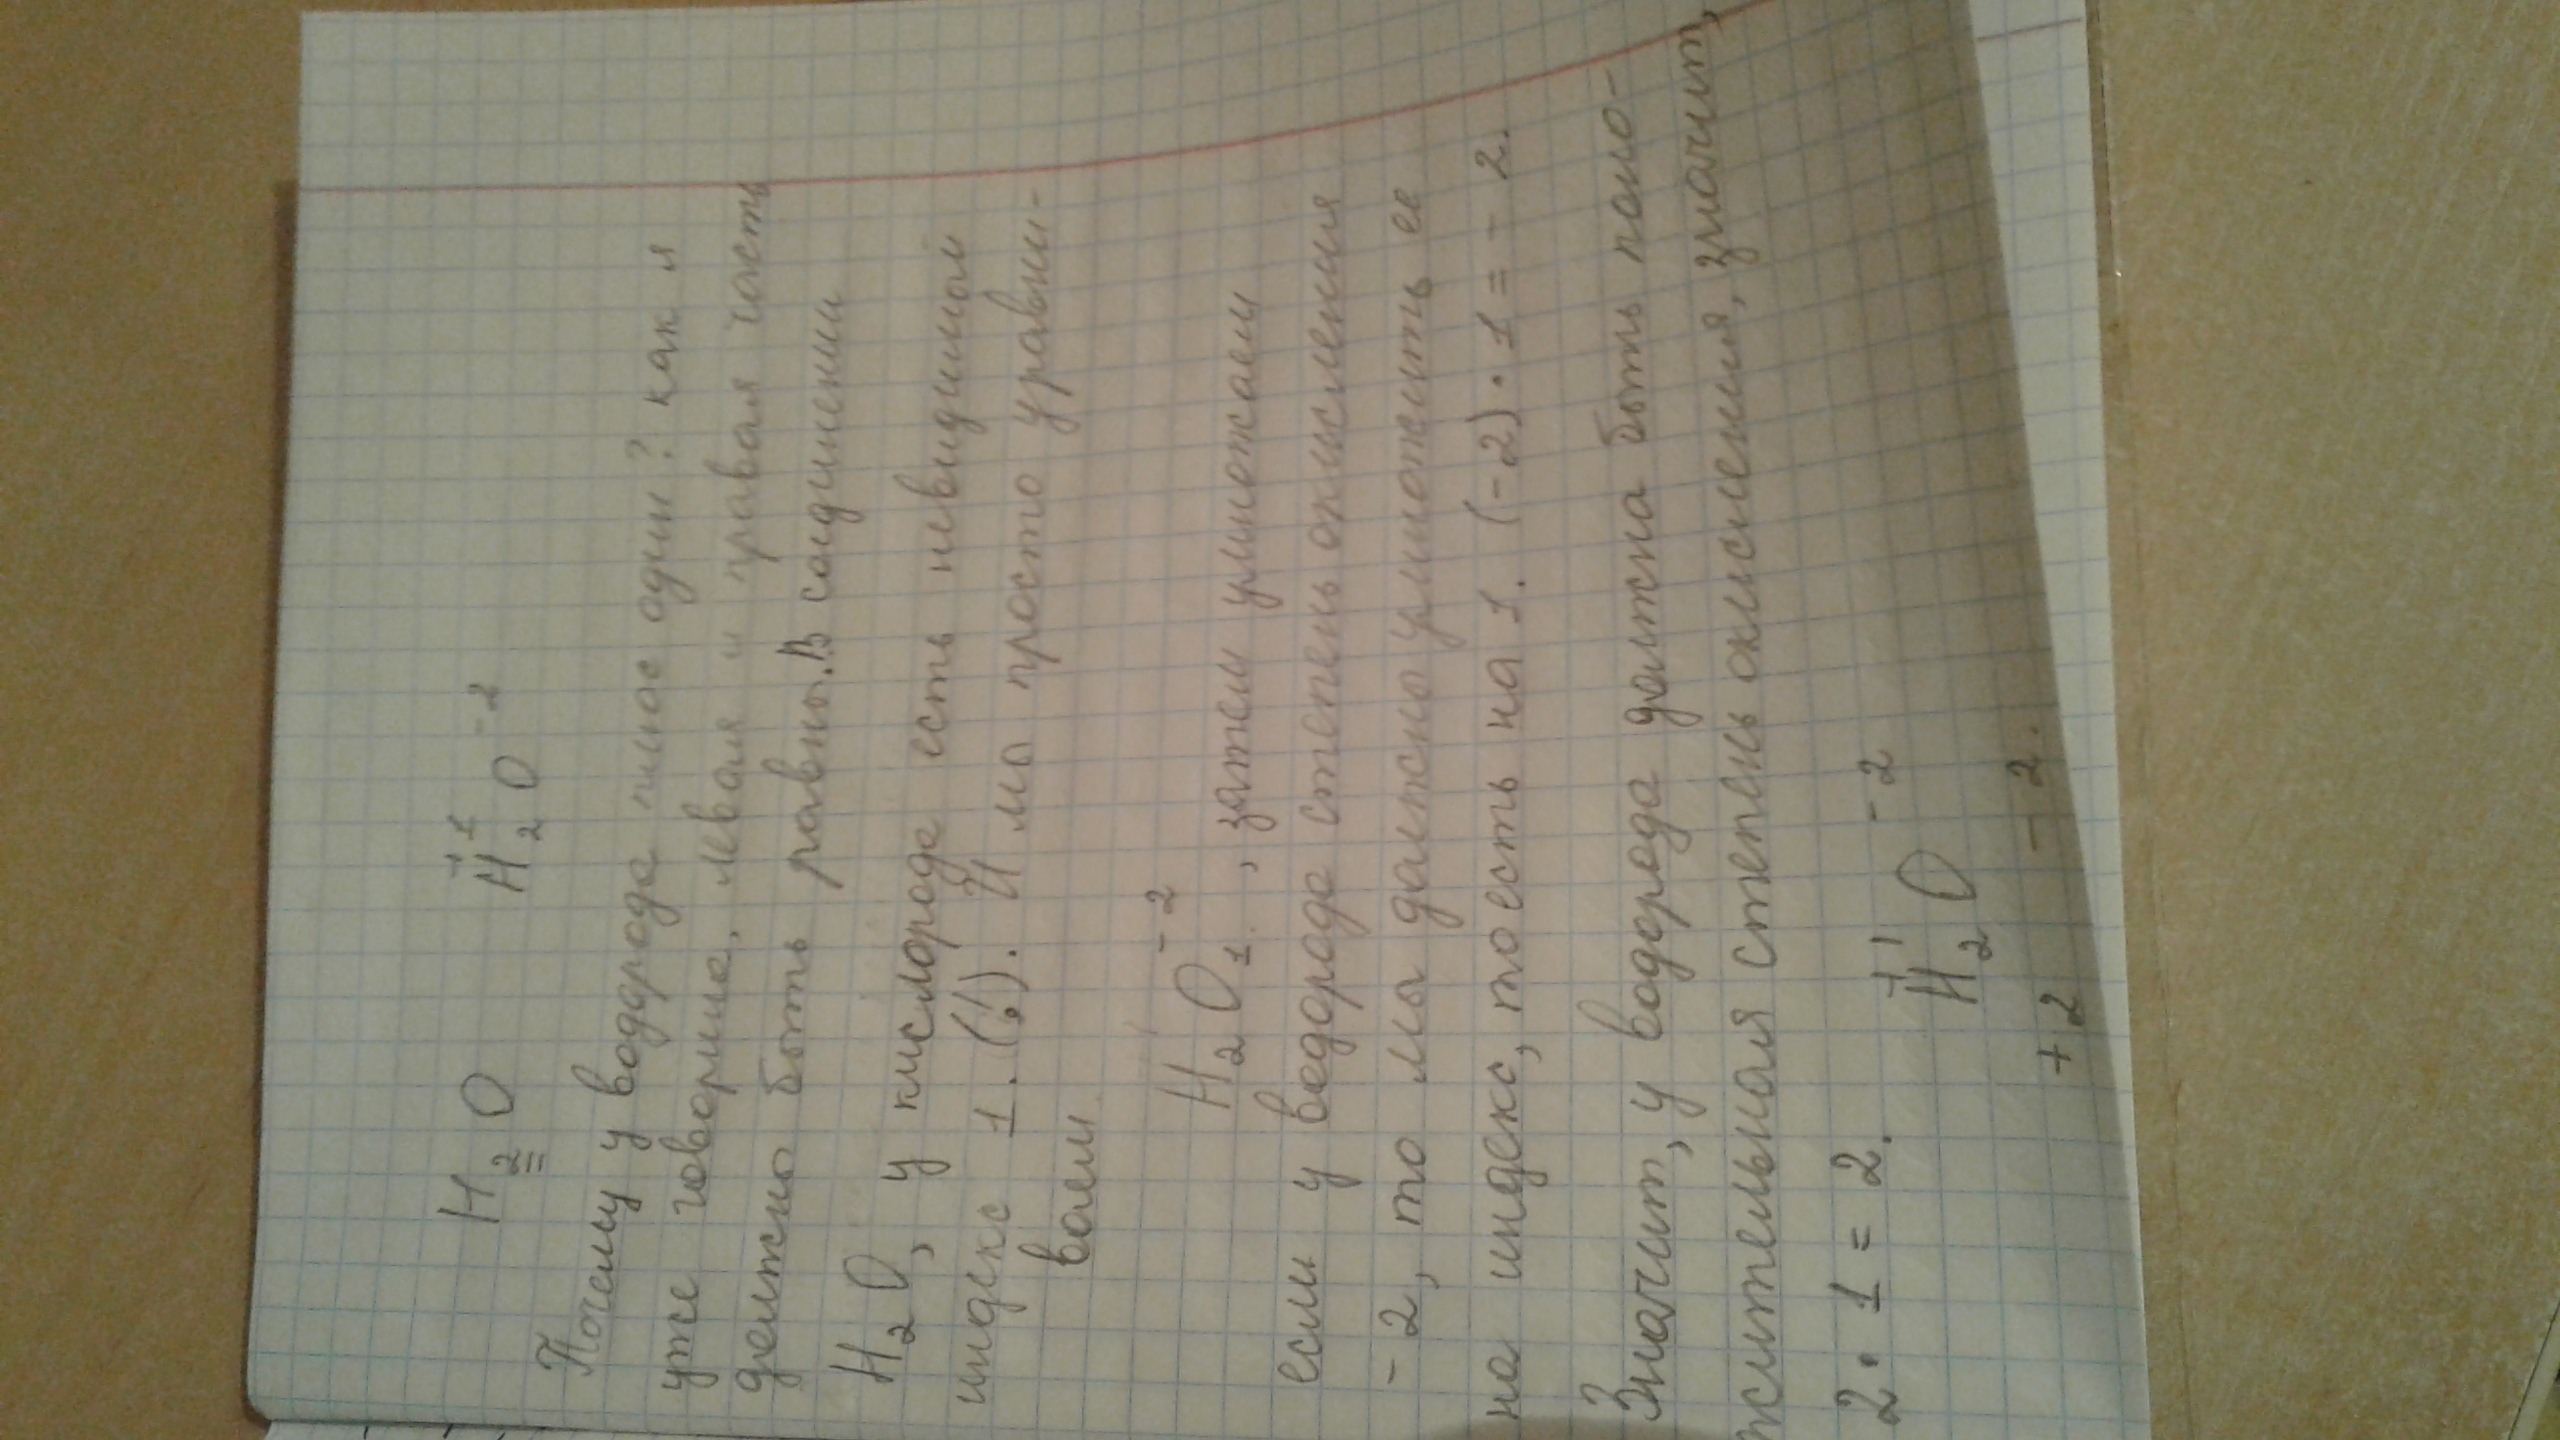 H₂O H₂⁺¹O⁻²
Почему у водорода плюс один? как я
уже говорила, левая и правая часть
должны быть равны. В соединении
H₂O, у кислорода есть невидимый
индекс 1. (б'). И мы просто уравни-
ваем.
H₂O₁⁻², затем умножаем
если у водорода степень окисления
-2, то мы должны умножить ее
на индекс, то есть на 1. (-2)·1=-2.
Значит, у водорода должна быть поло-
жительная степень окисления, значит,
2·1=2. H₂⁺¹O⁻²
+2 -2.